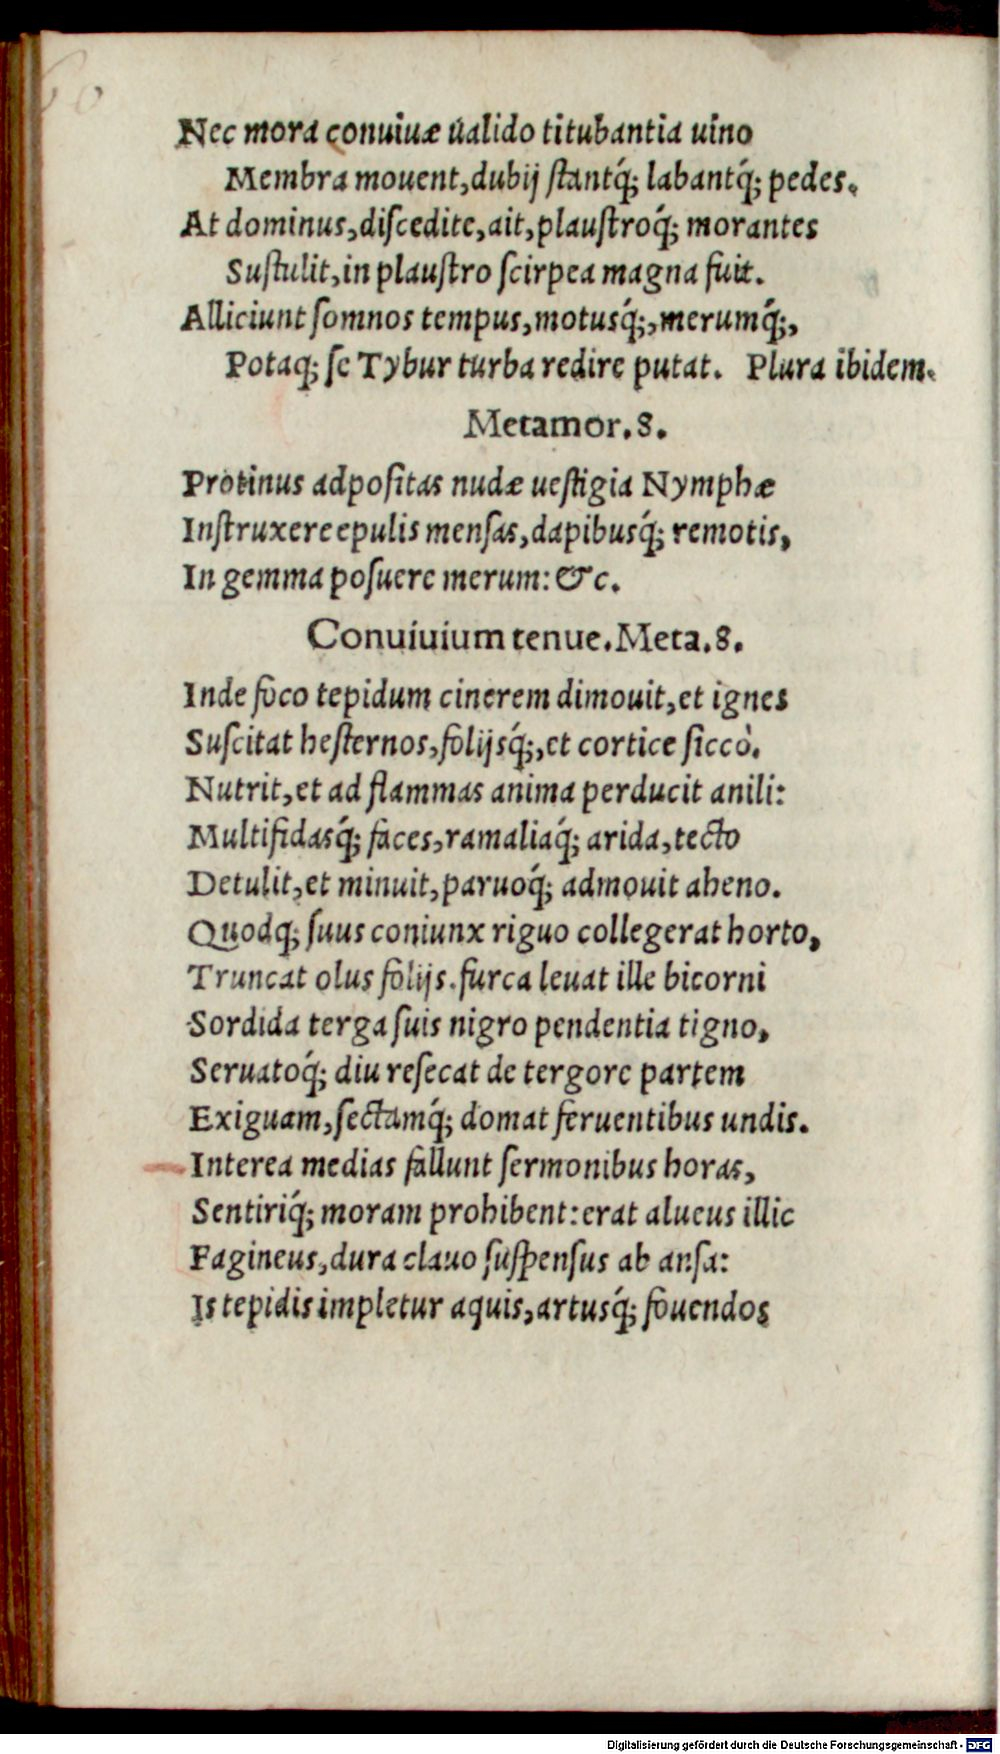 60
Nec mora conuiuæ ualido titubantia uino
Membra mouent, dubij ſtantq́; labantq́; pedes.
At dominus, diſcedite, ait, plauſtroq́; morantes
Suſtulit, in plauſtro ſcirpea magna fuit.
Alliciunt ſomnos tempus, motusq́;, merumq́;,
Potaq; ſe Tybur turba redire putat. Plura ibidem.
Metamor. 8.
Protinus adpoſitas nudæ ueſtigia Nymphæ
Inſtruxere epulis menſas, dapibusq́; remotis,
In gemma poſuere merum: &c.
Conuiuium tenue. Meta. 8.
Inde foco tepidum cinerem dimouit, et ignes
Suſcitat heſternos, folijsq́;, et cortice ſicco.
Nutrit, et ad flammas anima perducit anili:
Multifidasq́; faces, ramaliaq́; arida, tecto
Detulit, et minuit, paruoq́; admouit aheno.
Quodq; ſuus coniunx riguo collegerat horto,
Truncat olus folijs. furca leuat ille bicorni
Sordida terga ſuis nigro pendentia tigno,
Seruatoq́; diu reſecat de tergore partem
Exiguam, ſectamq́; domat feruentibus undis.
Interea medias fallunt ſermonibus horas,
Sentiriq́; moram prohibent: erat alueus illic
Fagineus, dura clauo ſuſpenſus ab anſa:
Is tepidis impletur aquis, artusq́; fouendos
Digitalisierung gefördert durch die Deutsche Forschungsgemeinschaft - DFG